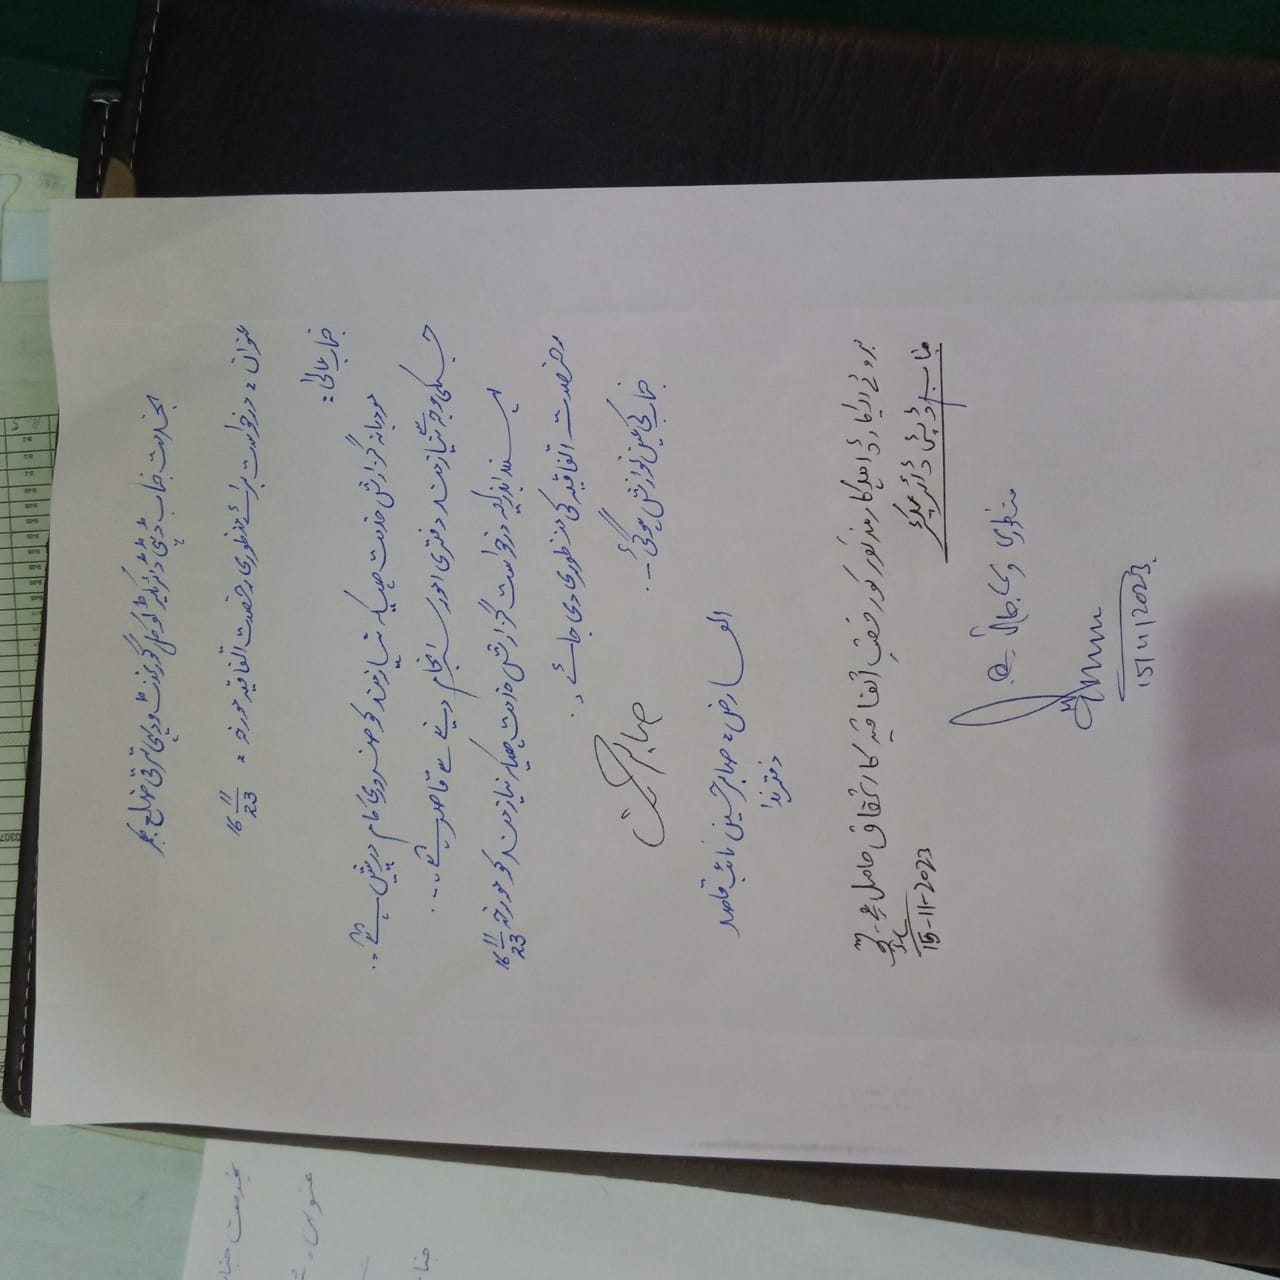 بخدمت جناب ڈپٹی ڈائریکٹر لوکل گورنمنٹ و دیہی ترقی ضلع بھمبر
عنوان : درخواست برائے منظوری رخصت اتفاقیہ مورخہ : 16 11/23
جناب عالی :
مودبانہ گزارش خدمت ہیکہ نیازمند کو ضروری کام درپیش ہے۔
جسکی وجہ سے نیازمند دفتری امور سرانجام دینے سے قاصر ہے۔
لہذا بذریعہ درخواست گزارش خدمت ہیکہ نیازمند کو مورخہ 16 11/23
رخصت اتفاقیہ کی منظوری دی جائے۔
جناب کی عین نوازش ہوگی۔
صابر حسین
العارض : صابر حسین نائب قاصد
دفتر ہذا
بروئے ریکارڈ اہلکار مذکور کو رخصت اتفاقیہ کا استحقاق حاصل ہے۔
15-11-2023
جناب ڈپٹی ڈائریکٹر
منظوری دی جاتی ہے۔
15/11/2023